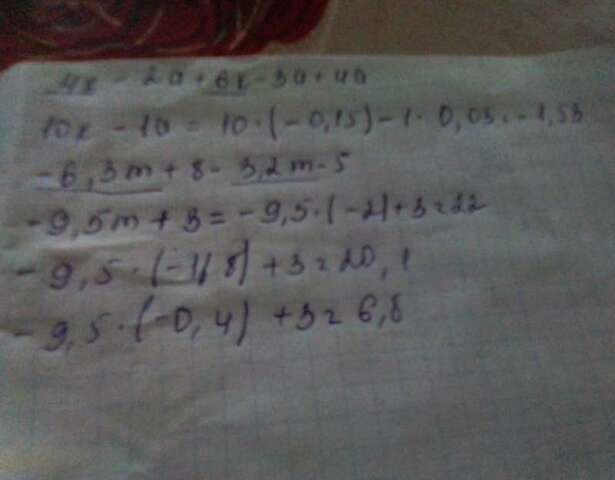 4x - 2a + 6x - 3a + 4a
10x - 1a = 10·(-0,15) - 1·0,03 = -1,53
-6,3m + 8 - 3,2m - 5
-9,5m + 3 = -9,5·(-2) + 3 = 22
-9,5·(-1,8) + 3 = 20,1
-9,5·(-0,4) + 3 = 6,8